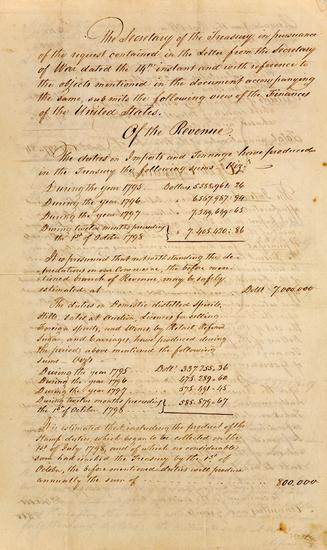 The Secretary of the Treasury in pursuance
of the request contained in the Letter from the Secretary
of War dated the 14th instant and with reference to
the objects mentioned in the document accompanying
the same, submits the following view of the Finances
of the United States.
Of the Revenue
The duties on Imports and Tonnage have produced
in the Treasury the following sums
During the year 1795 Dollars 5.588,961.26
During the year 1796 6.567,987.94
During the year 1797 7.549,649.65
During twelve months preceding
the 1st of October 1798 7.405.420.86
It is presumed that notwithstanding the de-
predations on our Commerce, the before men-
tioned branch of Revenue, may be safely
estimated at Dolls 7,000,000
The duties on Domestic distilled Spirits,
Stills, sales at Auction, Licenses for selling
foreign spirits, and Wines by Retail, Refined
Sugar, and Carriages, have produced during
the period above mentioned the following
sums
During the year 1795 Dolls 337.255.36
During the year 1796 475.289.60
During the year 1797 575.491.45
During twelve months preceding
the 1st of October 1798 585.879.67
It is estimated that including the product of the
Stamp duties which began to be collected on the
1st of July 1798, and of which no considerable
sum had reached the Treasury by the 1st of
October, the before mentioned duties will produce
annually the sum of 800,000